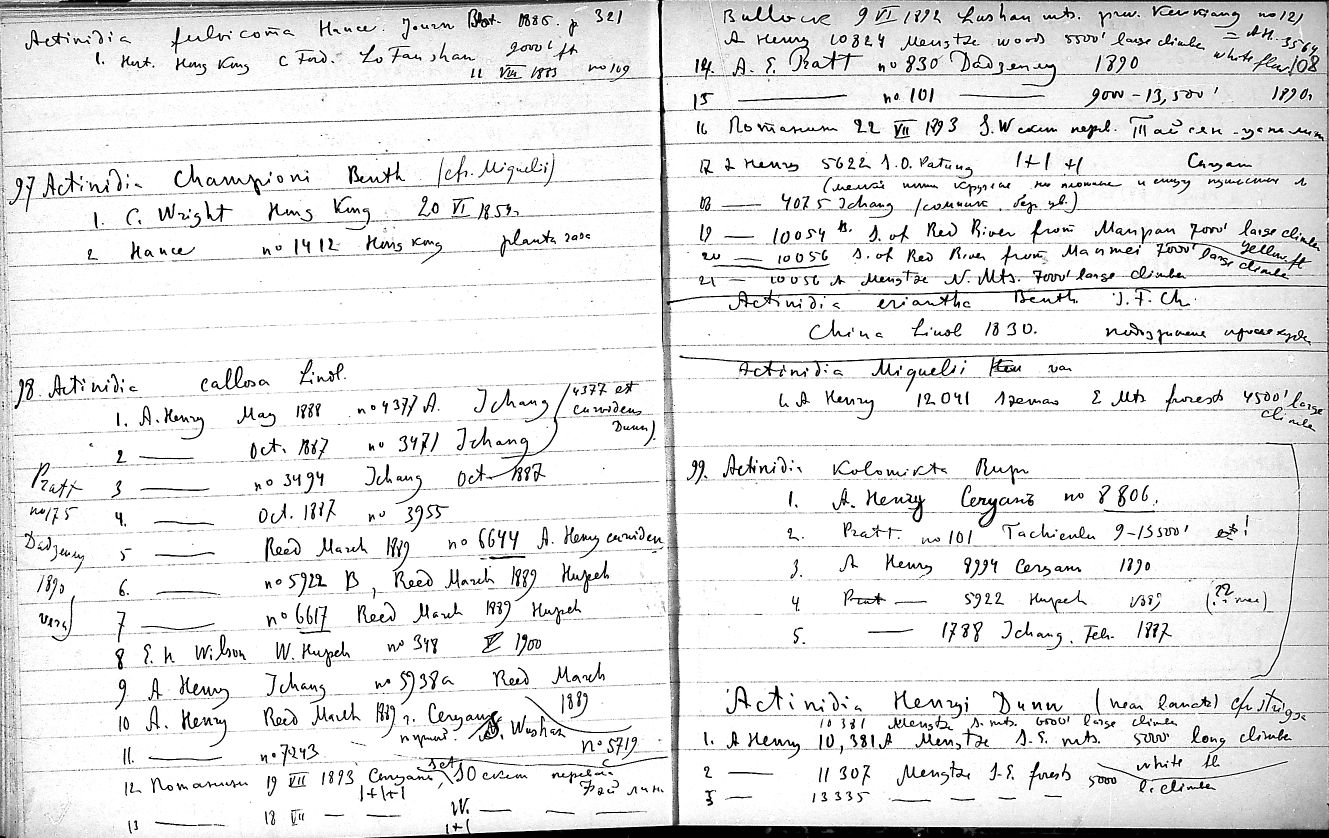 Actinidia fulvicoma Hance. Journ Bot. 1885. p 321
1. Hrt. Hong Kong C Ford. Lo Fau shan 2000' ft
11 VIII 1883 no 109
97 Actinidia Championi Benth (cfr. Miquelii)
1. C. Wright Hong Kong 20 VI 1854
2 Hance no 1412 Hong Kong planta rara
98. Actinidia callosa Lindl.
1. A. Henry May 1888 no 4377 A. Ichang (4377 est curvidens Dunn).
2 —— Oct. 1887 no 3471 Ichang
3 —— no 3494 Ichang Oct 1887
4. —— Oct. 1887 no 3955
5 —— Reed March 1889 no 6644 A. Henry curvidens
6. —— no 5922 B, Reed March 1889 Hupeh
7 —— no 6617 Reed March 1889 Hupeh
Pratt
no 175
Dadzenny
1890
8 E. H Wilson W. Hupeh no 348 V 1900
9 A Henry Ichang no 5938a Reed March 1889
10 A. Henry Reed March 1889 г. Сечуань S. Wushan
no 5719
11. —— no 7243
12 Потанин 19 VII 1893 Сечуань
1+1+1
13 —— 18 VII — — W. — — —
1+1
Bullock 9 VI 1892 Lushan mts. prov. Kewkiang no 121
= A.H. 3564
A Henry 10824 Mengtze woods 5500' large climber white flow
108
14. A. E. Pratt no 830 Dadzenny 1890
15 —— no 101 —— 9000 - 13,500' 1890.
16 Потанин 22 VII 1893
17 A Henry 5622 S.O. Patung 1+1 +1 Сечуан
18 —— 4075 Ichang
19 —— 10054 B. S. of Red River from Manpan 7000' large climber
yellow fl
20 —— 10056 S. of Red River from Manmei 7000' large climber
21 —— 10056 A Mengtze N. Mts. 7000' large climber
Actinidia eriantha Benth J.F.Ch.
China Lindl 1830.
Actinidia Miquelii var
1. A Henry 12041 Szemao E Mts forests 4500' large climber
99. Actinidia Kolomikta Rupr
1. A. Henry Сечуань no 8806.
2. Pratt. no 101 Tachienlu 9-13500'
3. A Henry 8994 Сечуань 1890
4 —— 5922 Hupeh 1889
5. —— 1788 Ichang. Feb. 1887
Actinidia Henryi Dunn (near lanceol) cfr strigosa
10381 Mengtze S. mts. 6000' large climber
1. A Henry 10,381A Mengtze S.E. mts. 5000' long climber
2 —— 11307 Mengtze S.E. forests 5000 white fl
l. climber
3 —— 13335 — — — —